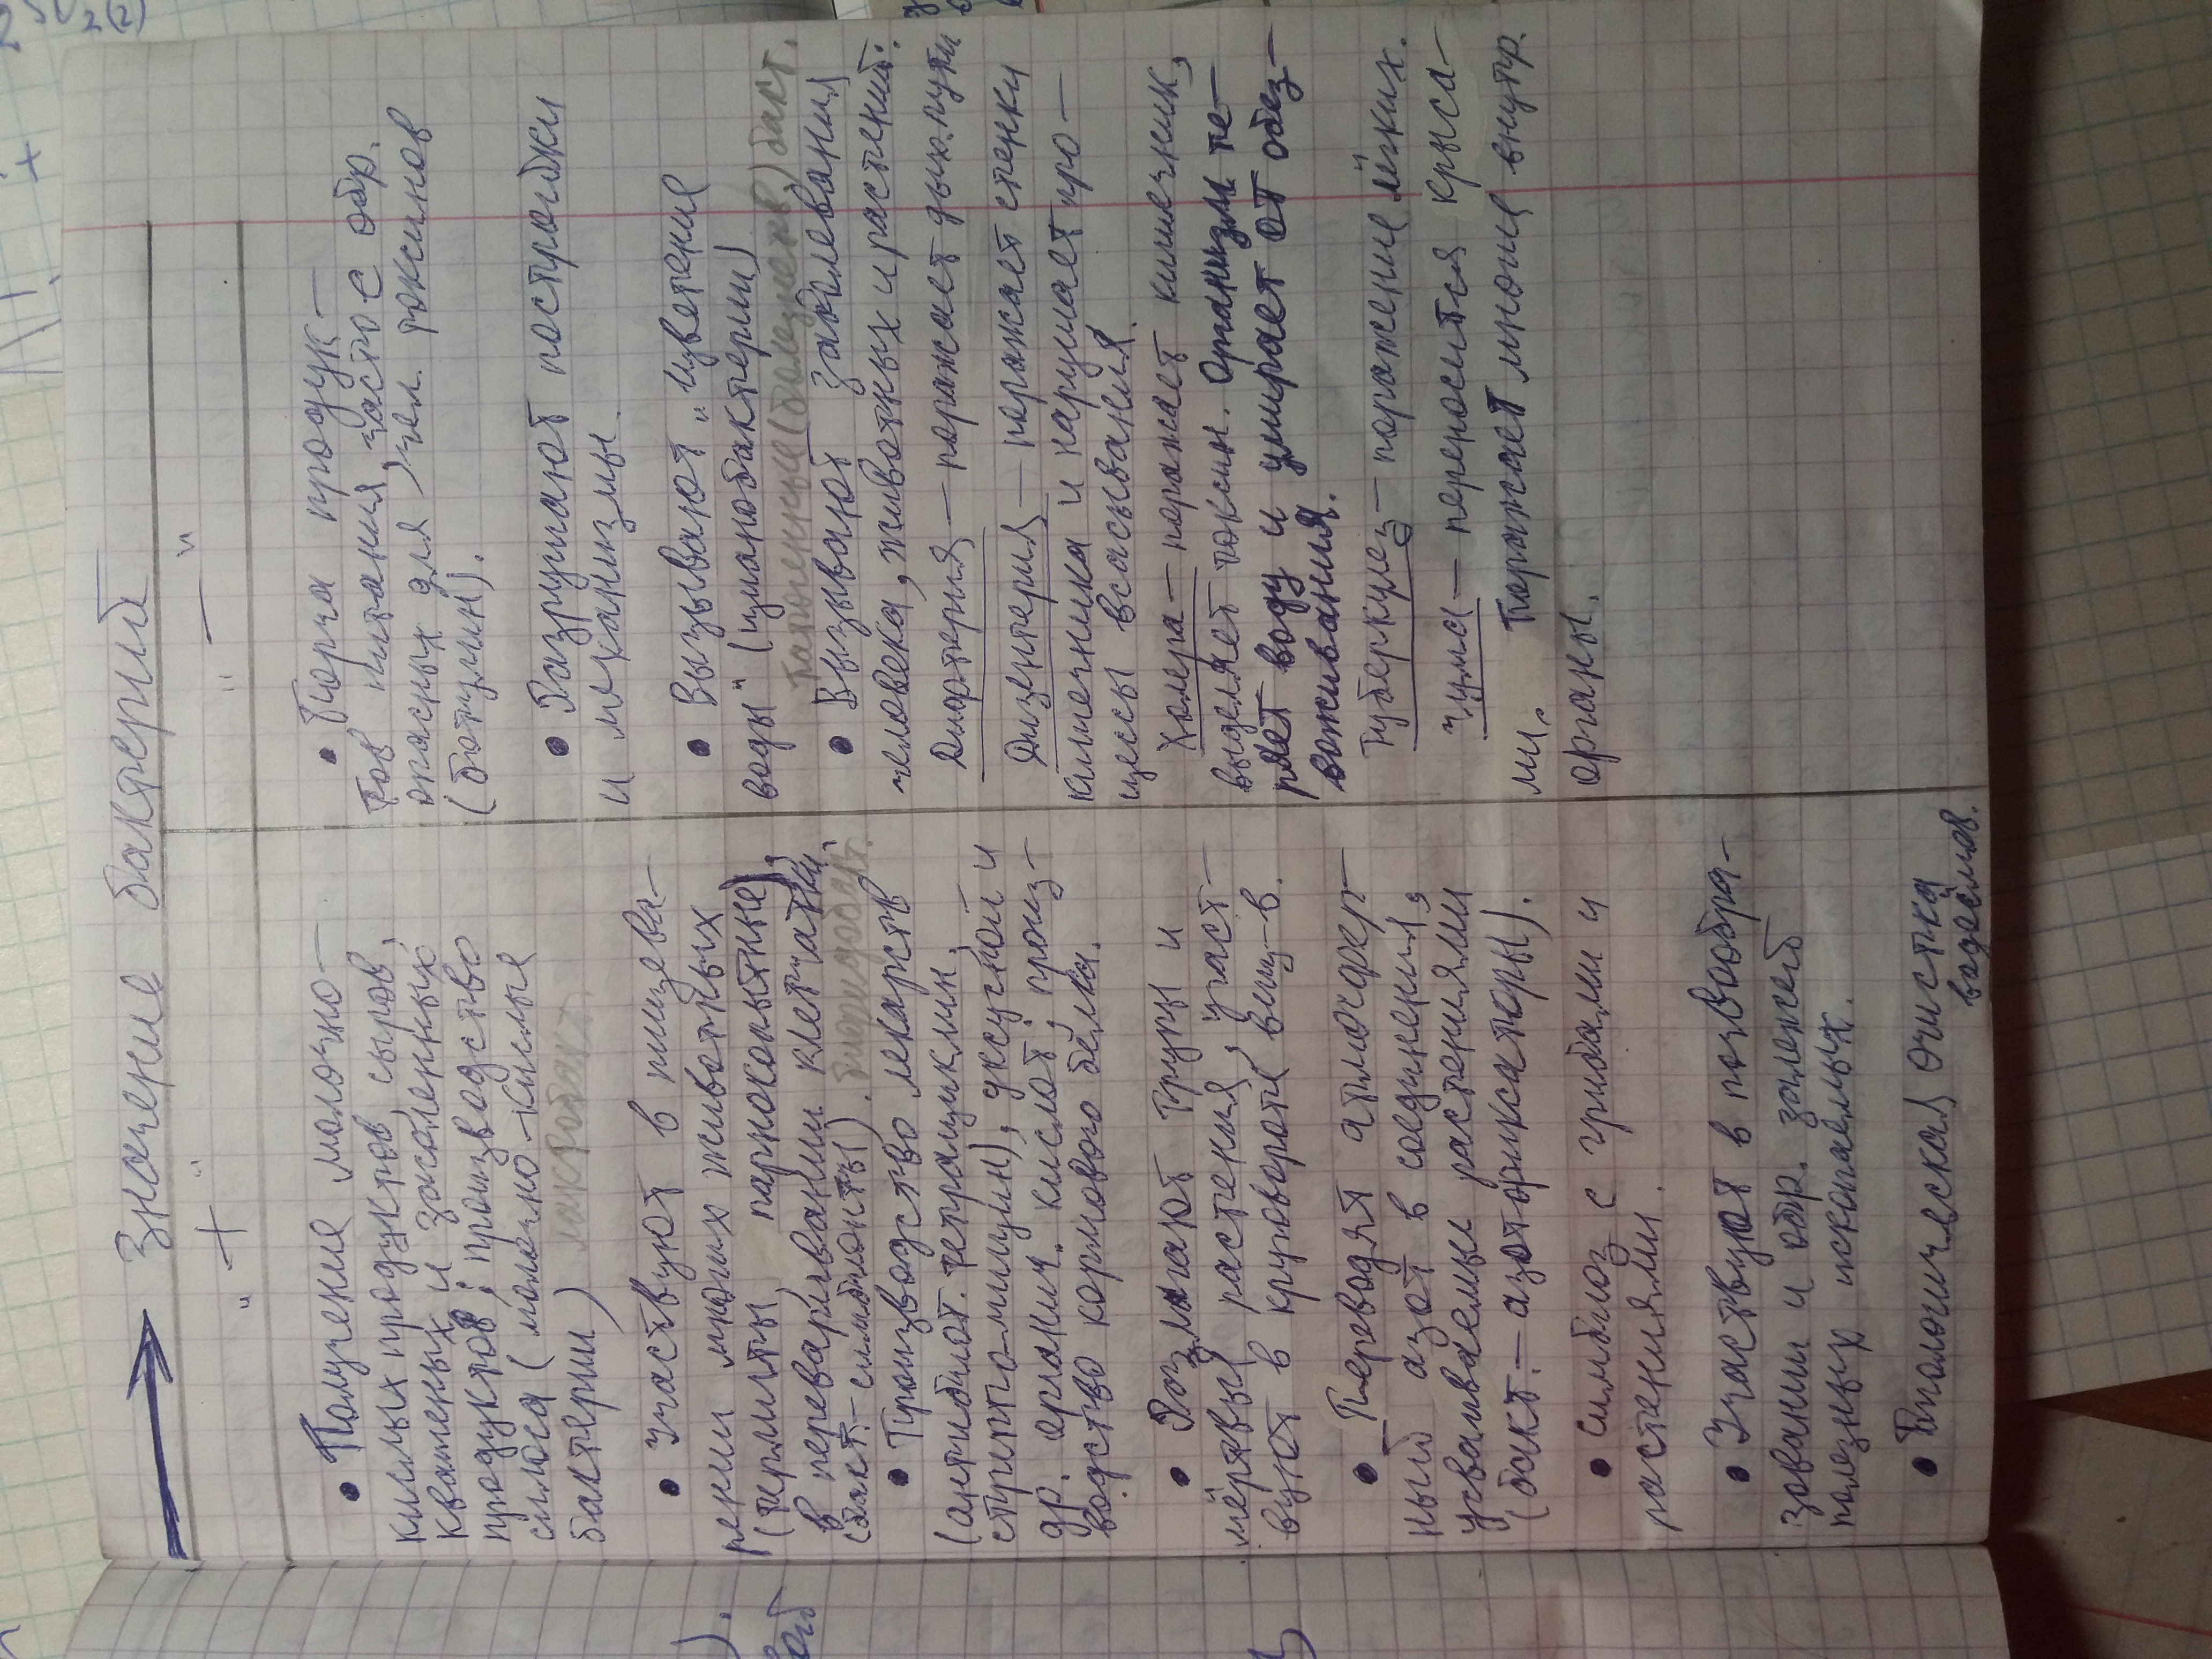 Значение бактерий
"+"
• Получение молочно-
кислых продуктов, сыров,
квашеных и засоленных
продуктов; производство
силоса (молочно-кислые
бактерии) лактобакт.
• Участвуют в пищева-
рении многих животных
(термиты, парнокопытные),
в переваривании клетчатки.
(бакт.-симбионты).
• Производство лекарств
(антибиот. тетрациклин,
стрепто-мицин), уксусной и
др. органич. кислот, произ-
водство кормового белка.
• Разлагают трупы и
мёртвые растения, участ-
вуют в круговороте вещ-в.
• Переводят атмосфер-
ный азот в соединения,
усваиваемые растениями
(бакт.-азотфиксаторы).
• симбиоз с грибами и
растениями.
• Участвуют в почвообра-
зовании и обр. залежей
полезных ископаемых.
• Биологическая очистка
водоёмов.
"—"
• Порча продук-
тов питания, часто с обр.
опасных для чел. токсинов
(ботулин).
• Разрушают постройки
и механизмы
• Вызывают „цветение
воды" (цианобактерии)
(болезнетв) бакт.
• Вызывают заболевания
человека, животных и растений:
Дифтерия — поражает дых. пути
Дизентерия — поражает стенки
кишечника и нарушает про-
цессы всасывания.
Холера — поражает кишечник,
выделяет токсин. Организм те-
ряет воду и умирает от обез-
воживания.
Туберкулез — поражение лёгких.
Чума — переносится крыса-
ми. Поражает многие внутр.
органы.